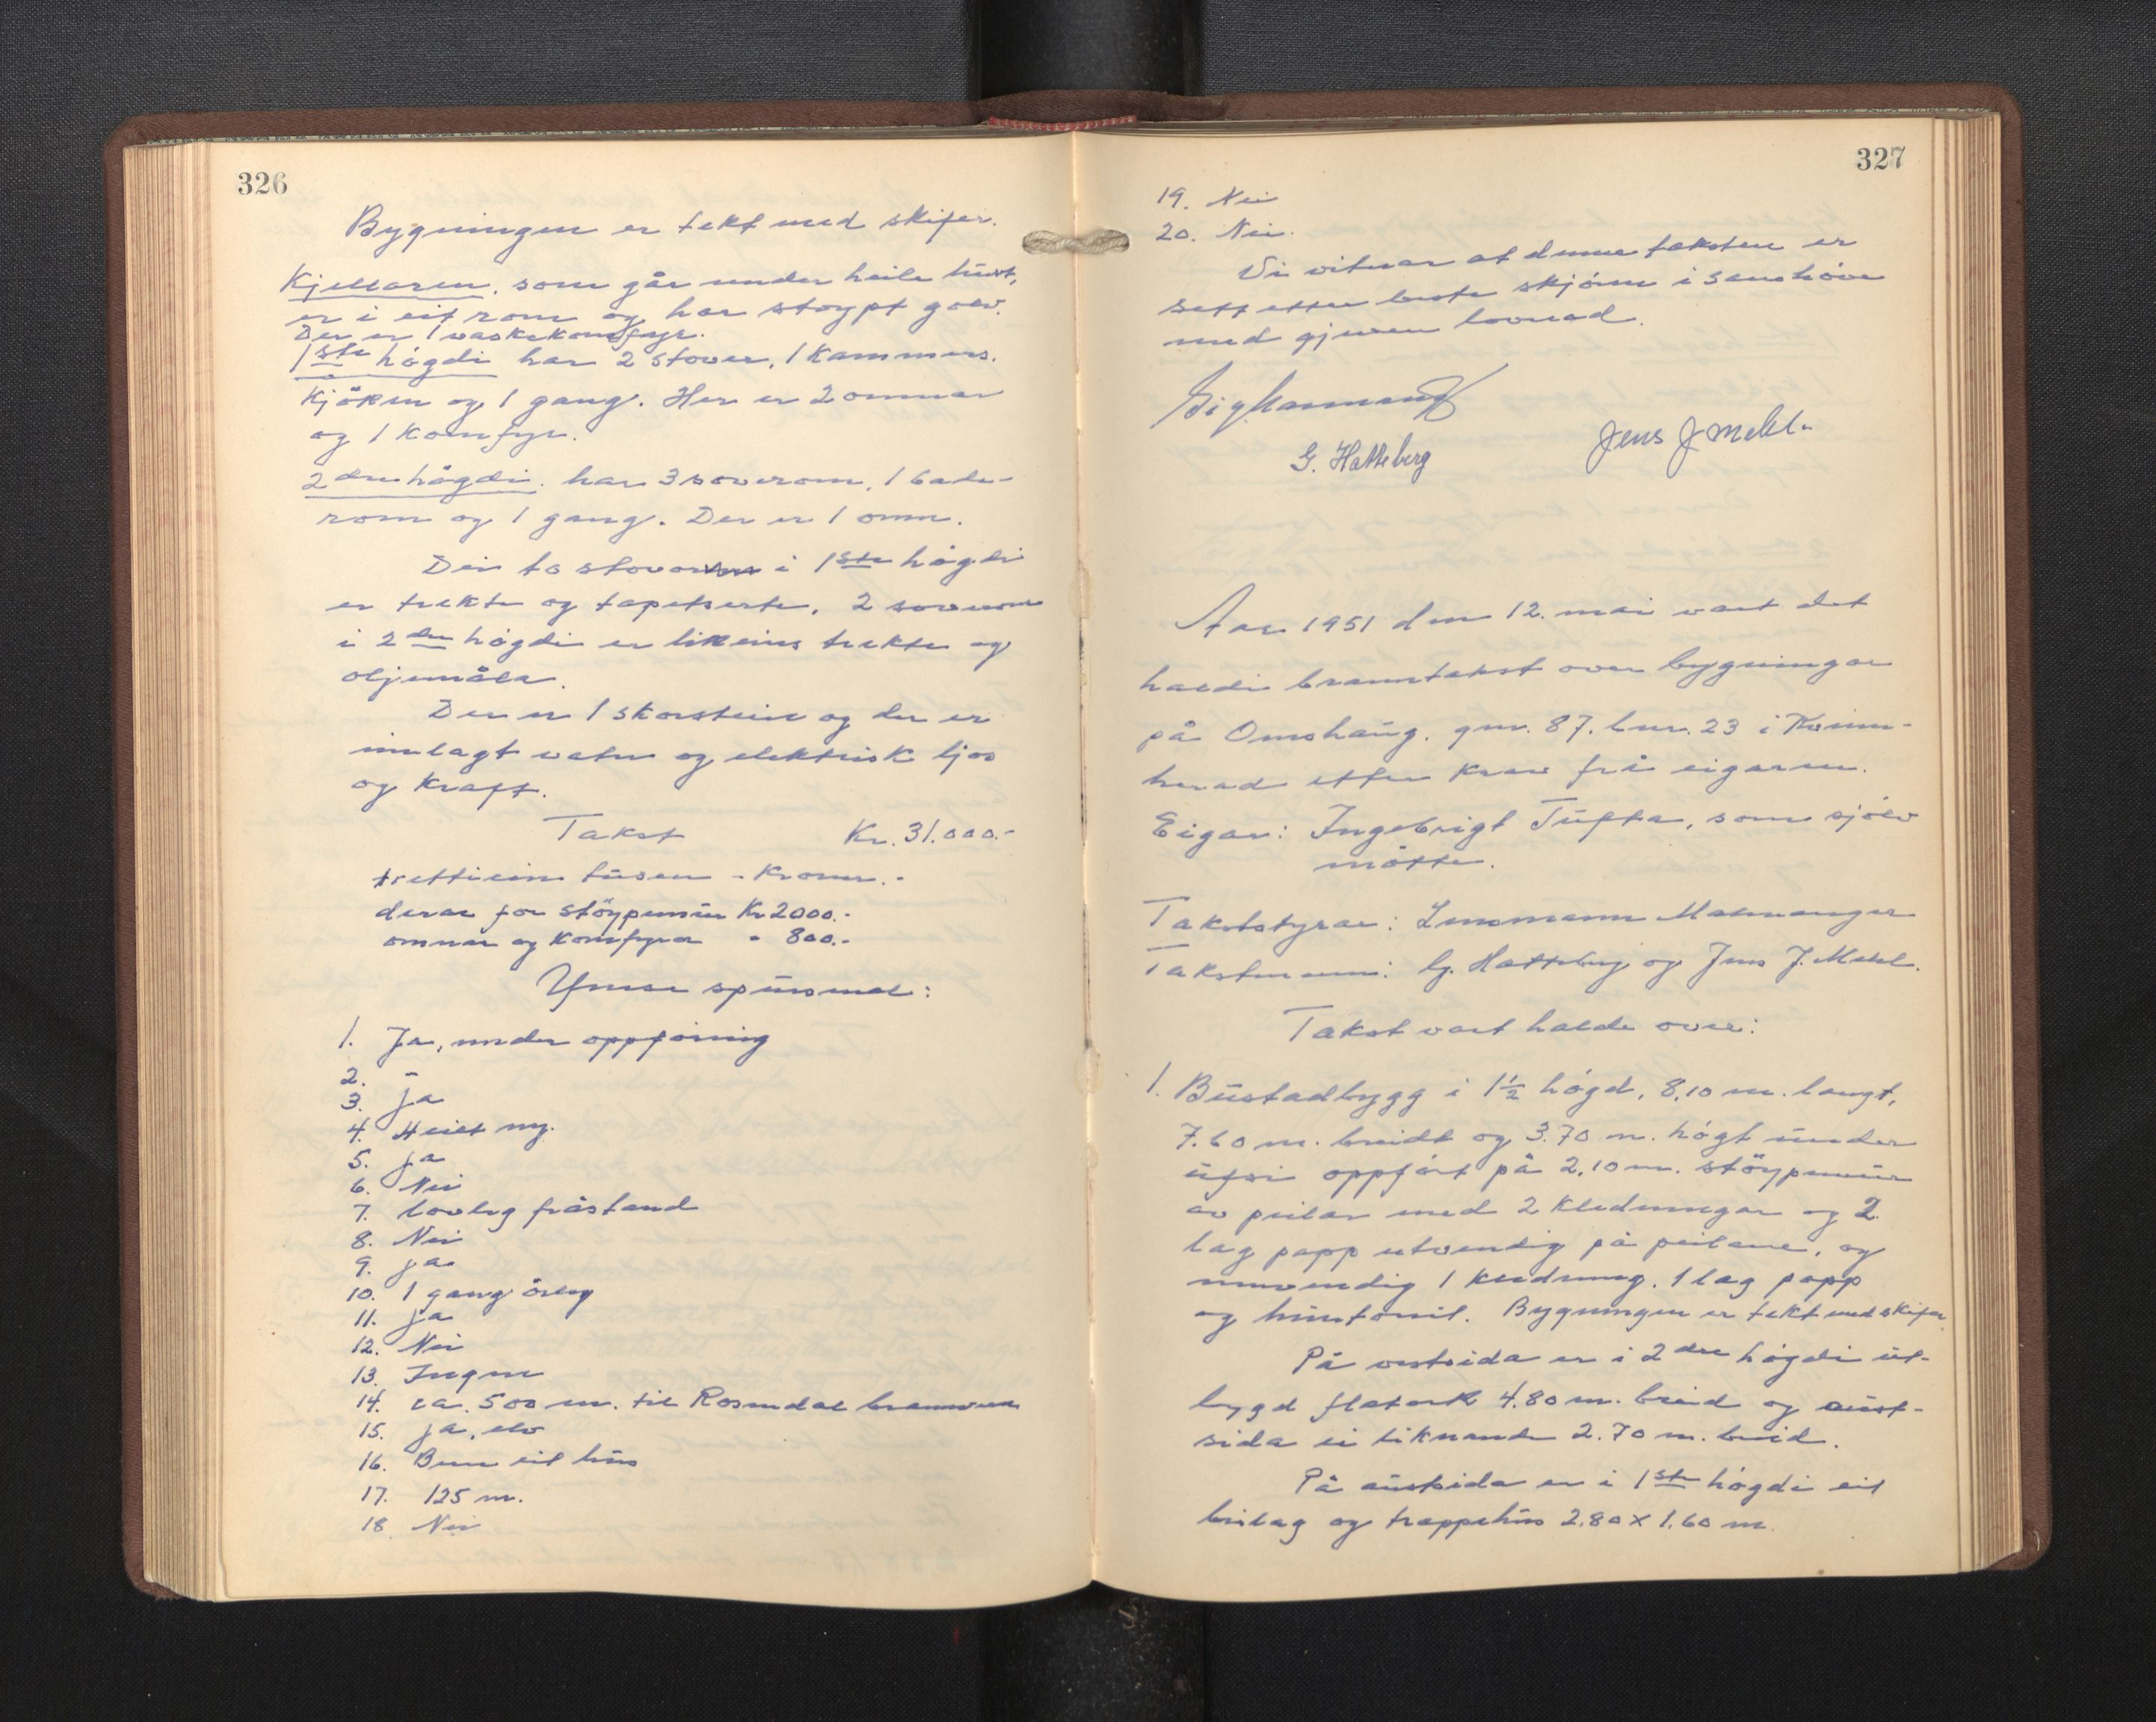 326
Bygningen er tekt med skifer.
Kjellaren, som går under heile huset,
er i eit rom og har støypt golv.
Der er 1 vaskekomfyr.
1ste høgdi har 2 stover, 1 kammers.
Kjøken og 1 gang. Her er 2 omnar
og 1 komfyr.
2dre høgdi. har 3 soverom, 1 bade-
rom og 1 gang. Der er 1 omn.
Dei to stover i 1ste høgdi
er trekte og tapetserte, 2 soverom
i 2dre høgdi er likeins trekte og
oljemåla.
Der er 1 skorstein og der er
innlagt vatn og elektrisk ljos
og kraft.
Takst Kr. 31.000.-
trettiein tusen - kroner.-
derav for støypemur Kr 2000.-
omnar og komfyrar - 800.-
Ymse spursmål:
1. Ja, under oppføring
2. -
3. Ja
4. Heilt ny.
5. Ja
6. Nei
7. lovleg fråstand
8. Nei
9. Ja
10. 1 gang årleg
11. Ja
12. Nei
13. Ingen
14. ca. 500 m. til Rosendal brannvern
15. Ja, elv
16. Bere eit hus
17. 125 m.
18. Nei
327
19. Nei
20. Nei.
Vi vitnar at denne taksten er
sett etter beste skjøn i samhøve
med gjeven lovnad.
G. Hatteberg Jens J Mehl.
Aar 1951 den 12. mai vart det
haldi branntakst over bygningar
på Omshaug, gnr. 87. bnr. 23 i Kvinn-
herad etter krav frå eigaren.
Eigar: Ingebrigt Tufta, som sjølv
møtte.
Takststyrar: Lensmann Malmanger
Takstmenn: G. Hatteberg og Jens J. Mehl.
Takst vart halde over:
1. Bustadbygg i 1½ høgd, 8,10 m. langt,
7.60 m. breidt og 3.70 m. høgt under
ufsi oppført på 2,10 m. støypemur
av peilar med 2 kledningar og 2
lag papp utvendig på peilane, og
innvendig 1 kledning, 1 lag papp
og huntonit. Bygningen er tekt med skifer.
På vestsida er i 2dre høgdi ut-
bygd flatark 4.80 m. breid og aust-
sida ei liknande 2.70 m. breid.
På austsida er i 1ste høgdi eit
bislag og trappehus 2.80 x 1.60 m.